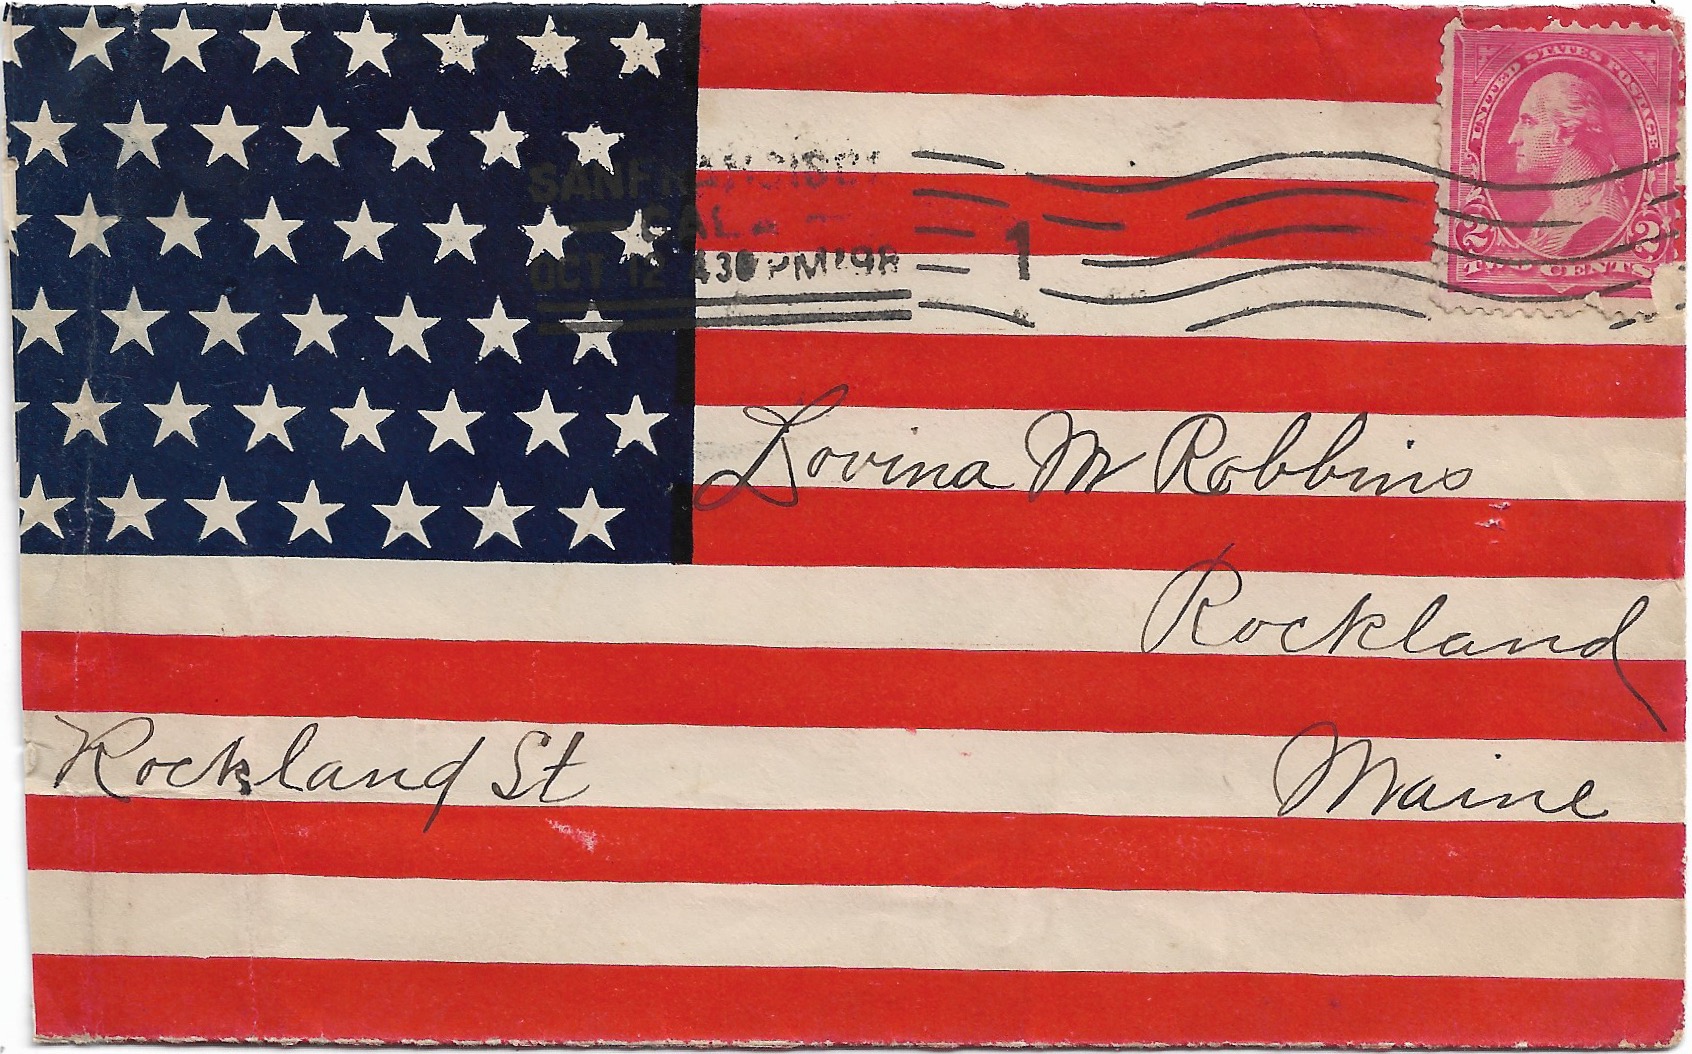 UNITED STATES POSTAGE
2 2
TWO CENTS
SAN FRANCISCO
CAL.
OCT 12 430 PM '98
1
Lovina M Robbins
Rockland
Maine
Rockland St